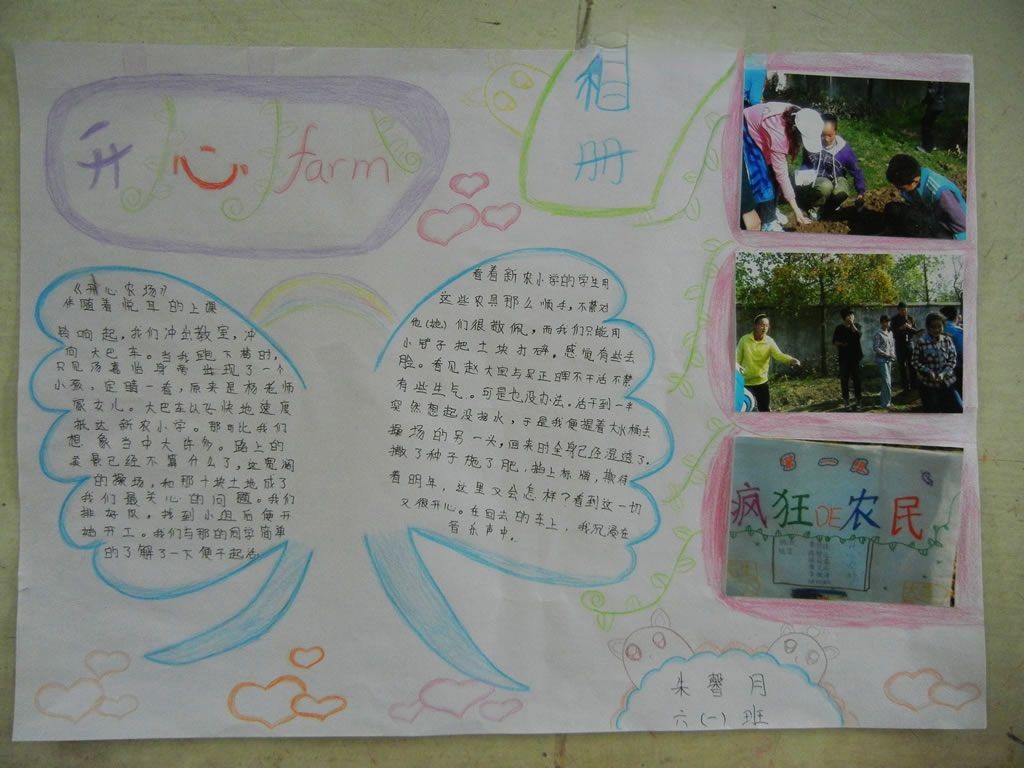 开心farm
相册
《开心农场》
伴随着悦耳的上课
铃响起,我们冲出教室,冲
向大巴车。当我跑下楼时,
只见汤老师身旁出现了一个
小孩,定睛一看,原来是杨老师
家女儿。大巴车以飞快地速度
抵达新农小学。那可比我们
想象当中大许多。路上的
美景已经不算什么了,这宽阔
的操场,和那十块土地成了
我们最关心的问题。我们
排好队,找到小组后便开
始开工。我们与那的同学简单
的了解了一下便干起活
看着新农小学的学生用
这些农具那么顺手,不禁对
他(她)们很敬佩,而我们只能用
小铲子把土块打碎,感觉有些丢
脸。看见赵大宝与吴正晖不干活不禁
有些生气。可是也没办法。活干到一半
突然想起没抽水,于是我便提着大水桶去
操场的另一头,回来时全身已经湿透了.
撒了种子施了肥,
看明年,这里又会怎样?看到这一切
又很开心。在回去的车上,我沉浸在
音乐声中.
第一组
疯狂DE农民
朱馨月
六(一)班